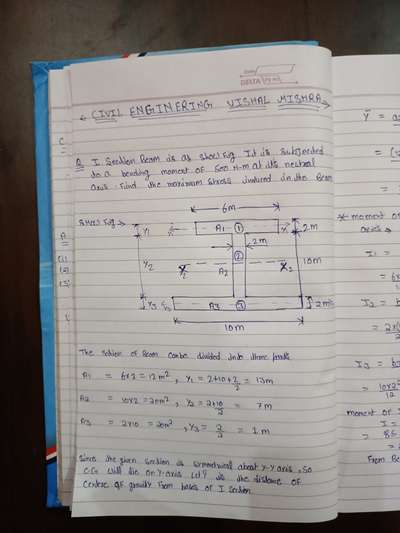 DELTA
CIVIL ENGINERING VISHAL MISHRA
Q I Section Beam is as shoel fig. It is subjected
to a bending moment of 500 N-m at its neutral
axis. find the maximum stress induced in the Beam
shoel fig →
6m
Y1
A1 ①
2m
2m
Y2
②
A2
10m
Y3
A3
③
2m
10m
The section of Beam can be divided into three parts
A1 = 6x2 = 12m², Y1 = 2+10+2/2 = 13m
A2 = 10x2 = 20m², Y2 = 2+10/2 = 7m
A3 = 2x10 = 20m², Y3 = 2/2 = 1m
Since the given section is symmetrical about Y-Y axis, So
C.G. will lie on Y-axis let Ȳ is the distance of
Centre of gravity from bases of I section
Ȳ =
* moment of
I1 =
I2 =
I3 =
10x2³
12
moment of
I =
= 85
From Be